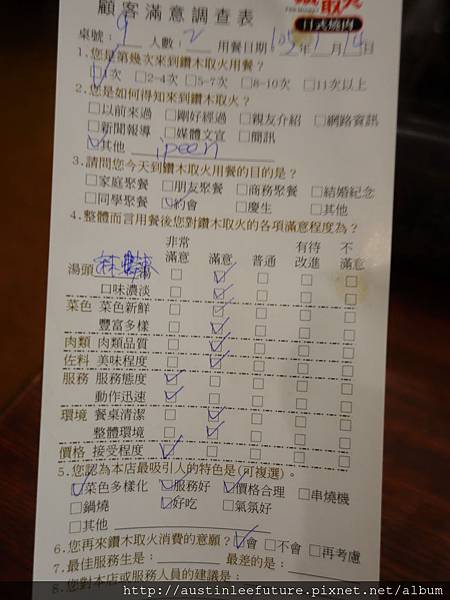 取火
日式燒肉
顧客滿意調查表
桌號：9 人數：2 用餐日期105年1月14日
1.您是第幾次來到鑽木取火用餐？
□1次 □2-4次 □5-7次 □8-10次 □11次以上
2.您是如何得知來到鑽木取火？
□以前來過 □剛好經過 □親友介紹 □網路資訊
□新聞報導 □媒體文宣 □簡訊
□其他 ipeen
3.請問您今天到鑽木取火用餐的目的是？
□家庭聚餐 □朋友聚餐 □商務聚餐 □結婚紀念
□同學聚餐 □約會 □慶生 □其他
4.整體而言用餐後您對鑽木取火的各項滿意程度為？
非常滿意 滿意 普通 有待改進 不滿意
湯頭 □ □ □ □ □
口味濃淡 □ □ □ □ □
菜色 菜色新鮮 □ □ □ □ □
豐富多樣 □ □ □ □ □
肉類 肉類品質 □ □ □ □ □
佐料 美味程度 □ □ □ □ □
服務 服務態度 □ □ □ □ □
動作迅速 □ □ □ □ □
環境 餐桌清潔 □ □ □ □ □
整體環境 □ □ □ □ □
價格 接受程度 □ □ □ □ □
5.您認為本店最吸引人的特色是(可複選)。
□菜色多樣化 □服務好 □價格合理 □串燒機
□鍋燒 □好吃 □氣氛好
□其他
6.您再來鑽木取火消費的意願？□會 □不會 □再考慮
7.最佳服務生是： 最差的是：
8.您對本店或服務人員的建議是：
http://austinleefuture.pixnet.net/album